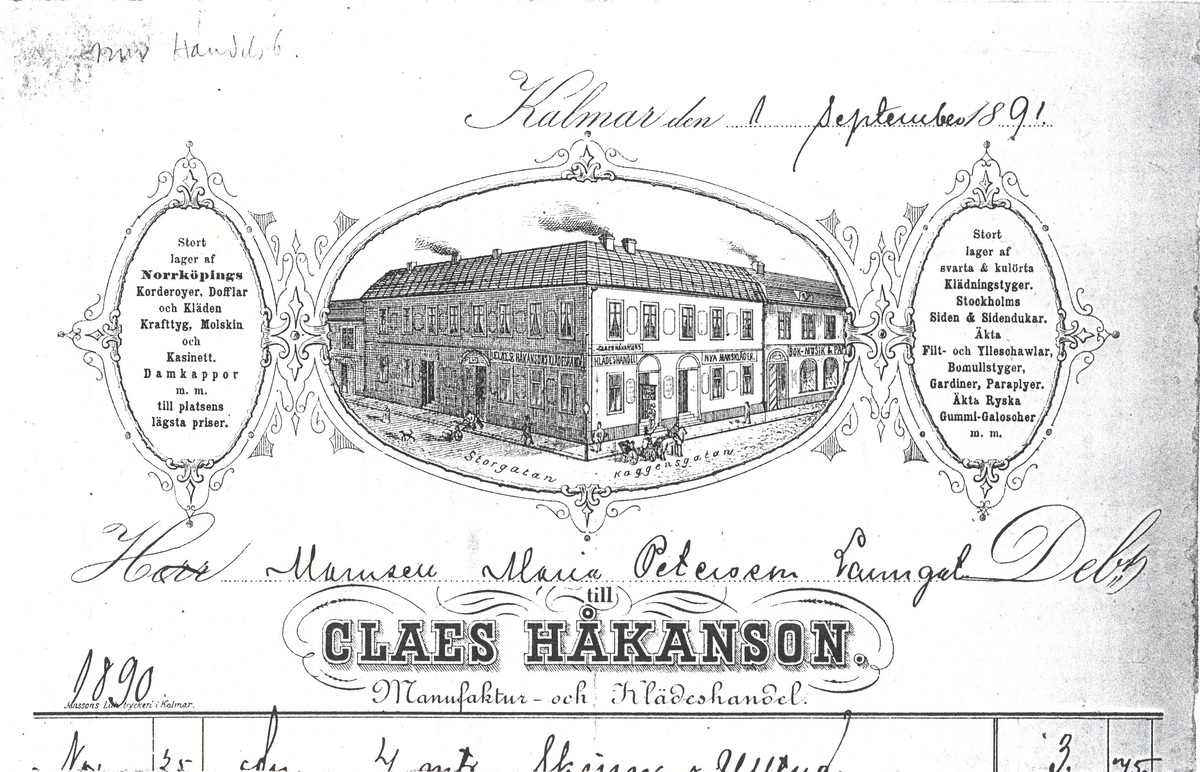 Handel, 6.
Kalmar den 1 September 1891.
Stort
lager af
Norrköpings
Korderoyer, Dofflar
och Kläden
Krafttyg, Molskin
och
Kasinett.
Damkappor
m. m.
till platsens
lägsta priser.
CLAES HÅKANSONS KLÄDESHANDEL
CLAES HÅKANSONS
KLÄDESHANDEL
NYA MANSKLÄDER.
BOK- MUSIK & PAP
Storgatan
Kaggensgatan
Stort
lager af
svarta & kulörta
Klädningstyger.
Stockholms
Siden & Sidendukar.
Äkta
Filt- och Ylleschawlar,
Bomullstyger,
Gardiner, Paraplyer.
Äkta Ryska
Gummi-Galoscher
m. m.
Herr Mamsell Maria Peterson Debet
till
CLAES HÅKANSON.
Manufaktur- och Klädeshandel.
1890
Månssons Lit. tryckeri i Kalmar.
25 4 3 75